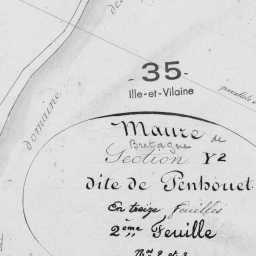 - 35 -
Ille-et-Vilaine
domaine
Maure de
Bretagne
Section Y2
dite de Penhouet
En treize feuilles
2ème Feuille